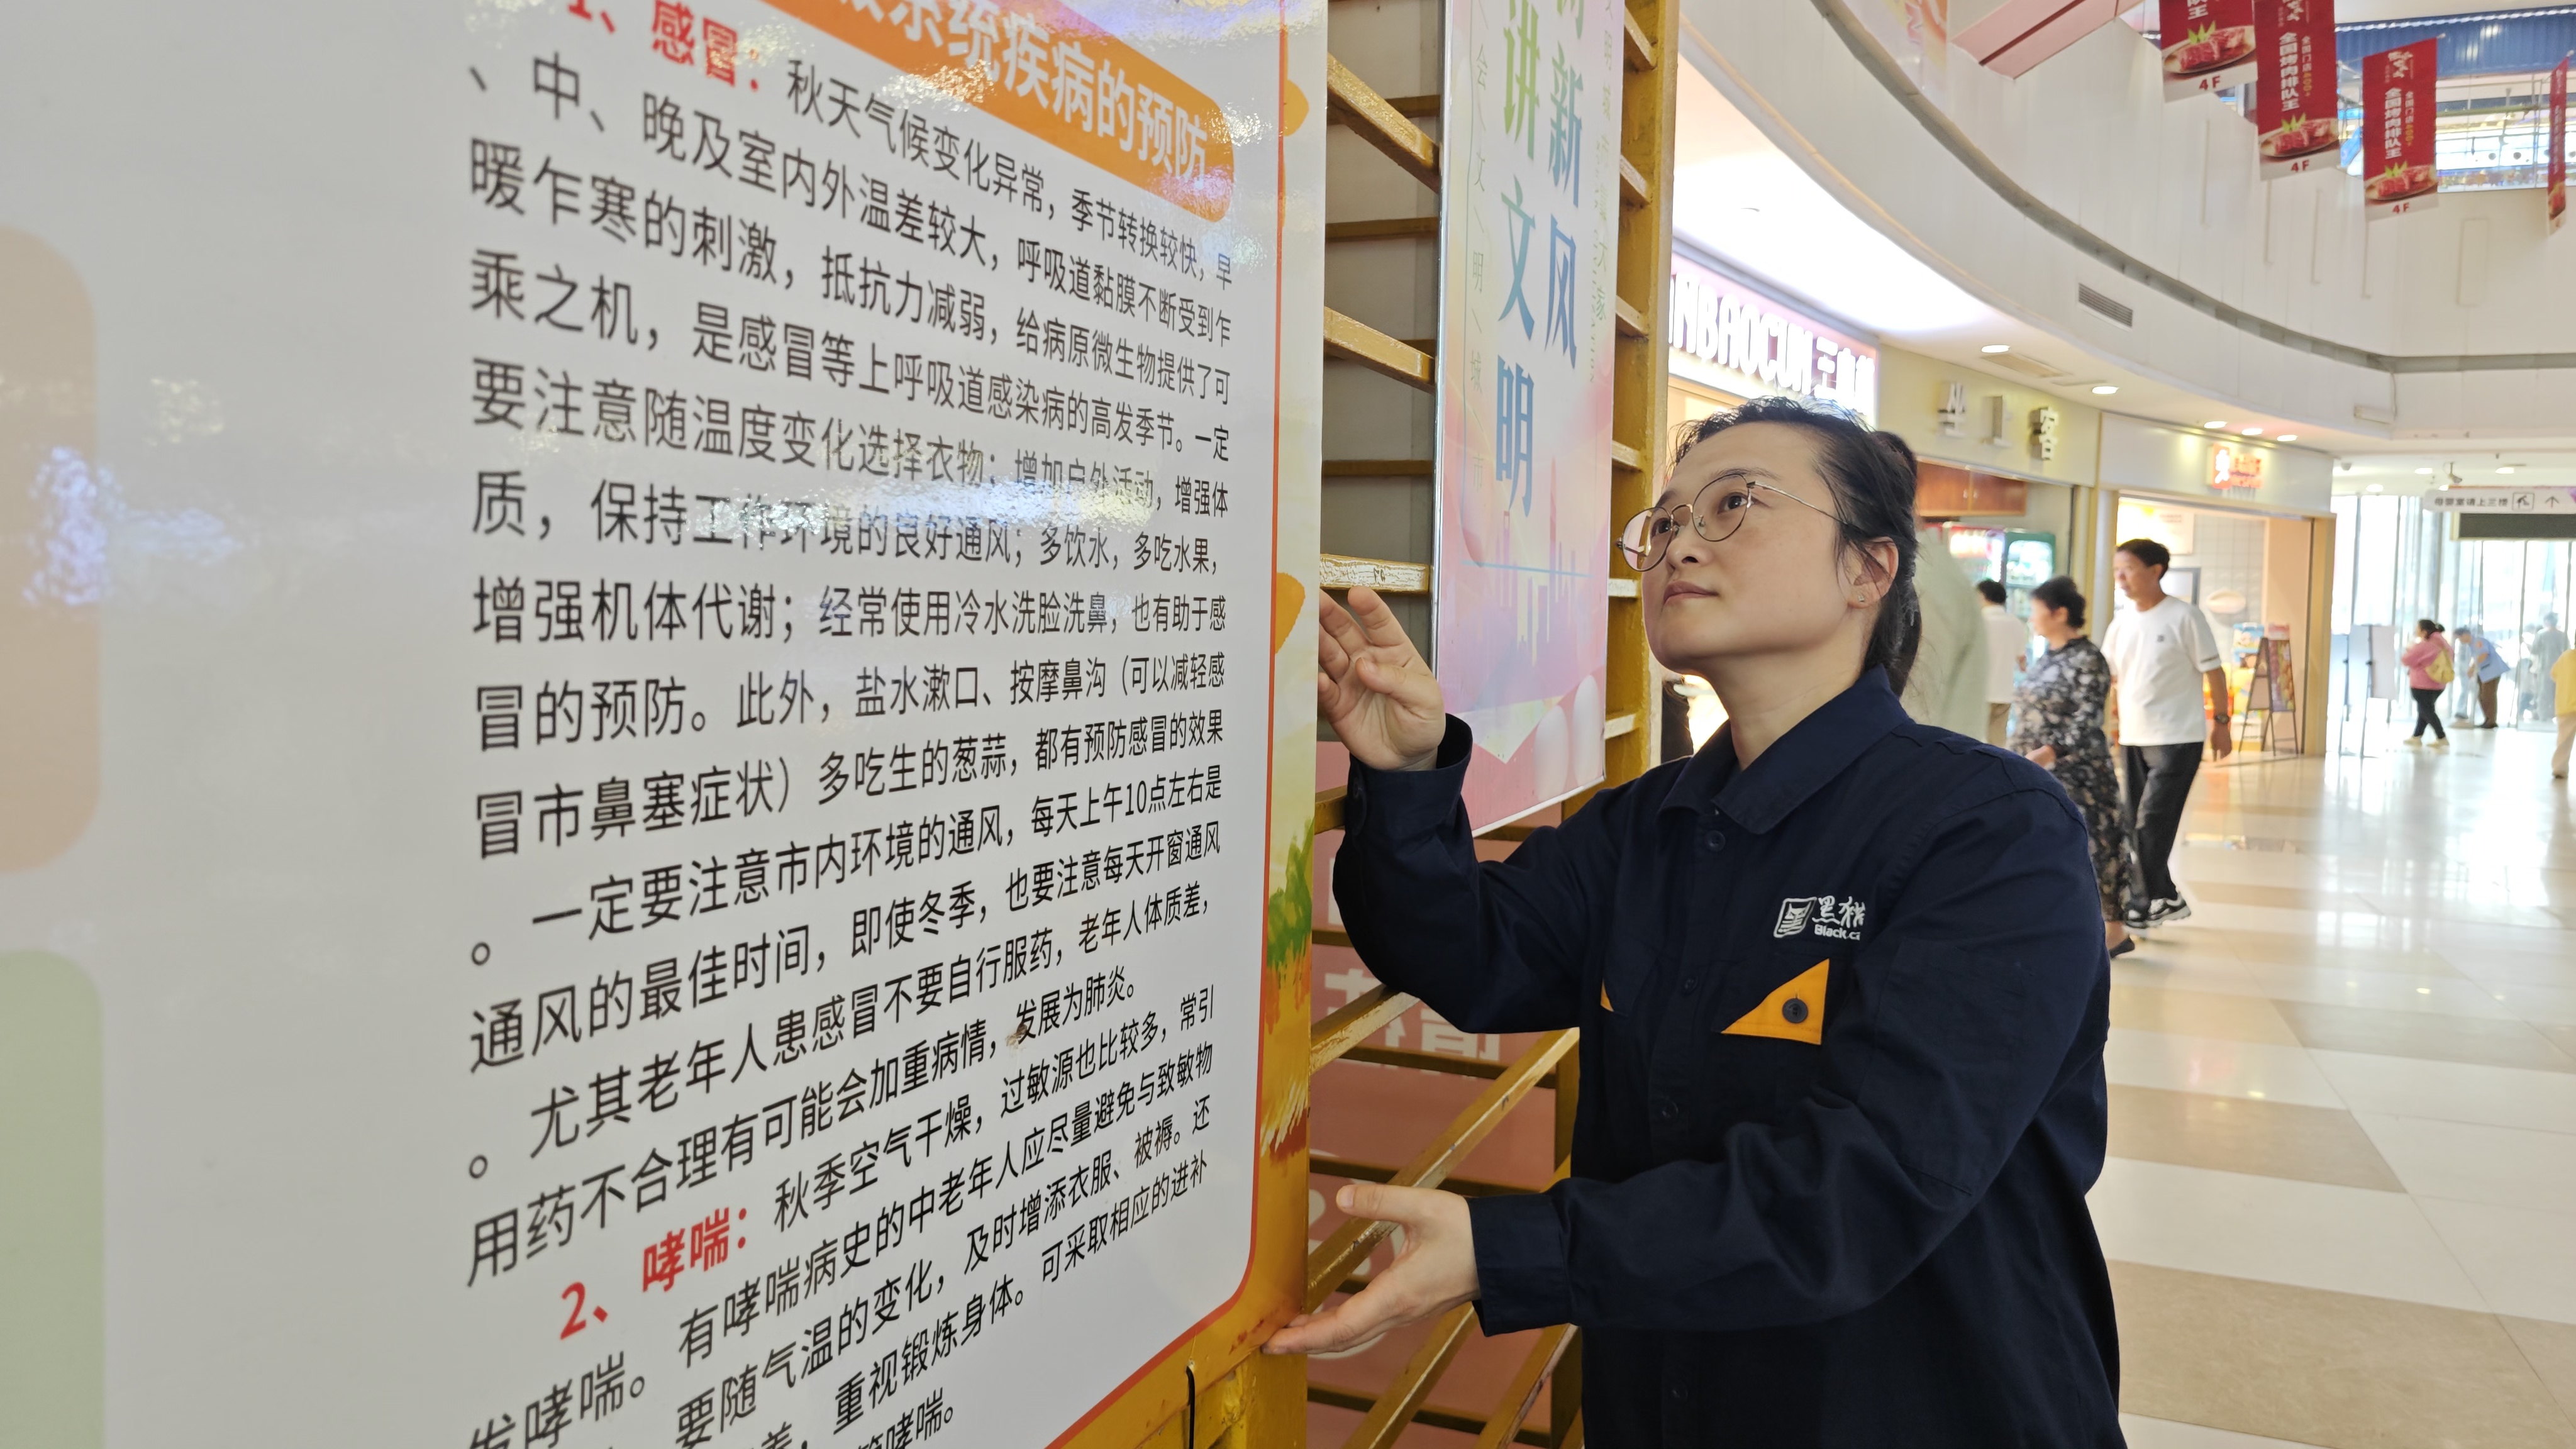 系统疾病的预防
1、感冒：秋天气候变化异常，季节转换较快，早
、中、晚及室内外温差较大，呼吸道黏膜不断受到乍
暖乍寒的刺激，抵抗力减弱，给病原微生物提供了可
乘之机，是感冒等上呼吸道感染病的高发季节。一定
要注意随温度变化选择衣物；增加户外活动，增强体
质，保持工作环境的良好通风；多饮水，多吃水果，
增强机体代谢；经常使用冷水洗脸洗鼻，也有助于感
冒的预防。此外，盐水漱口、按摩鼻沟（可以减轻感
冒市鼻塞症状）多吃生的葱蒜，都有预防感冒的效果
。一定要注意市内环境的通风，每天上午10点左右是
通风的最佳时间，即使冬季，也要注意每天开窗通风
。尤其老年人患感冒不要自行服药，老年人体质差，
用药不合理有可能会加重病情，发展为肺炎。
2、哮喘：秋季空气干燥，过敏源也比较多，常引
发哮喘。有哮喘病史的中老年人应尽量避免与致敏物
要随气温的变化，及时增添衣服、被褥。还
，重视锻炼身体。可采取相应的进补
哮喘。
新风
讲文明
黑猫
Black.ca
全国烤肉排队王
4F
全国烤肉排队王
全国门店400+
4F
全国烤肉排队王
全国门店400+
4F
母婴室请上三楼